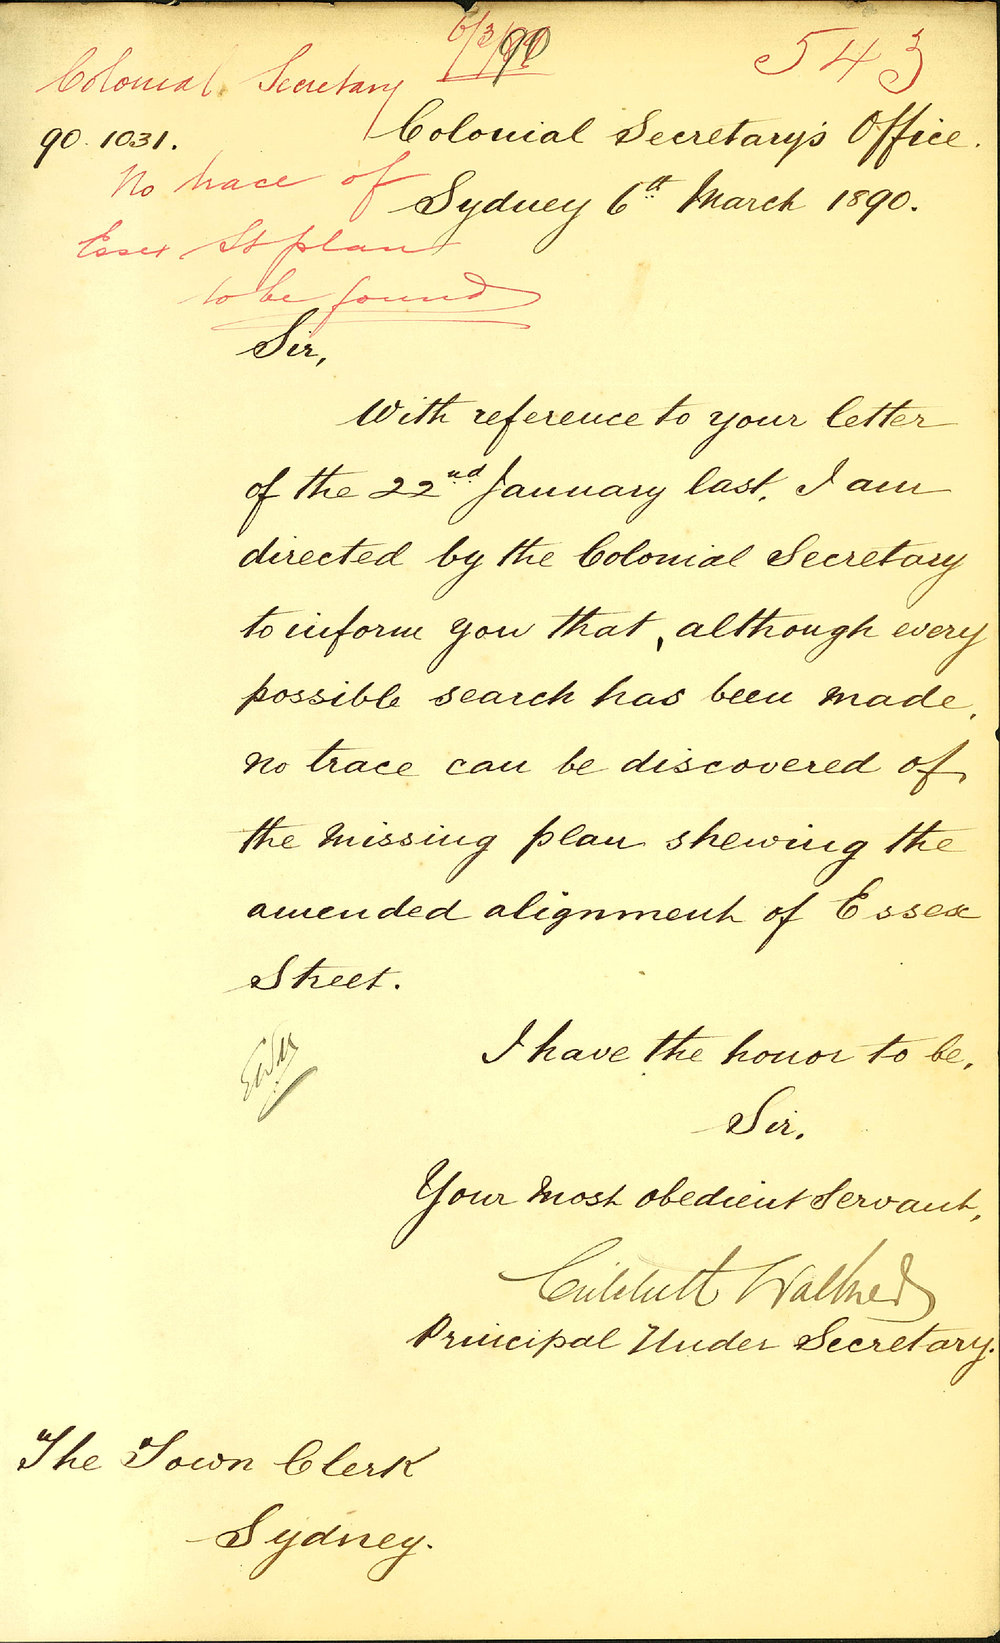 6/3/90
543
Colonial Secretary
90.1031.
Colonial Secretary's Office.
No trace of
Sydney 6th March 1890.
Essex St plan
to be found
Sir,
With reference to your letter
of the 22nd January last, I am
directed by the Colonial Secretary
to inform you that, although every
possible search has been made,
no trace can be discovered of
the missing plan shewing the
amended alignment of Essex
Street.
I have the honor to be,
Sir,
Your most obedient Servant,
Critchett Walker
Principal Under Secretary.
The Town Clerk
Sydney.